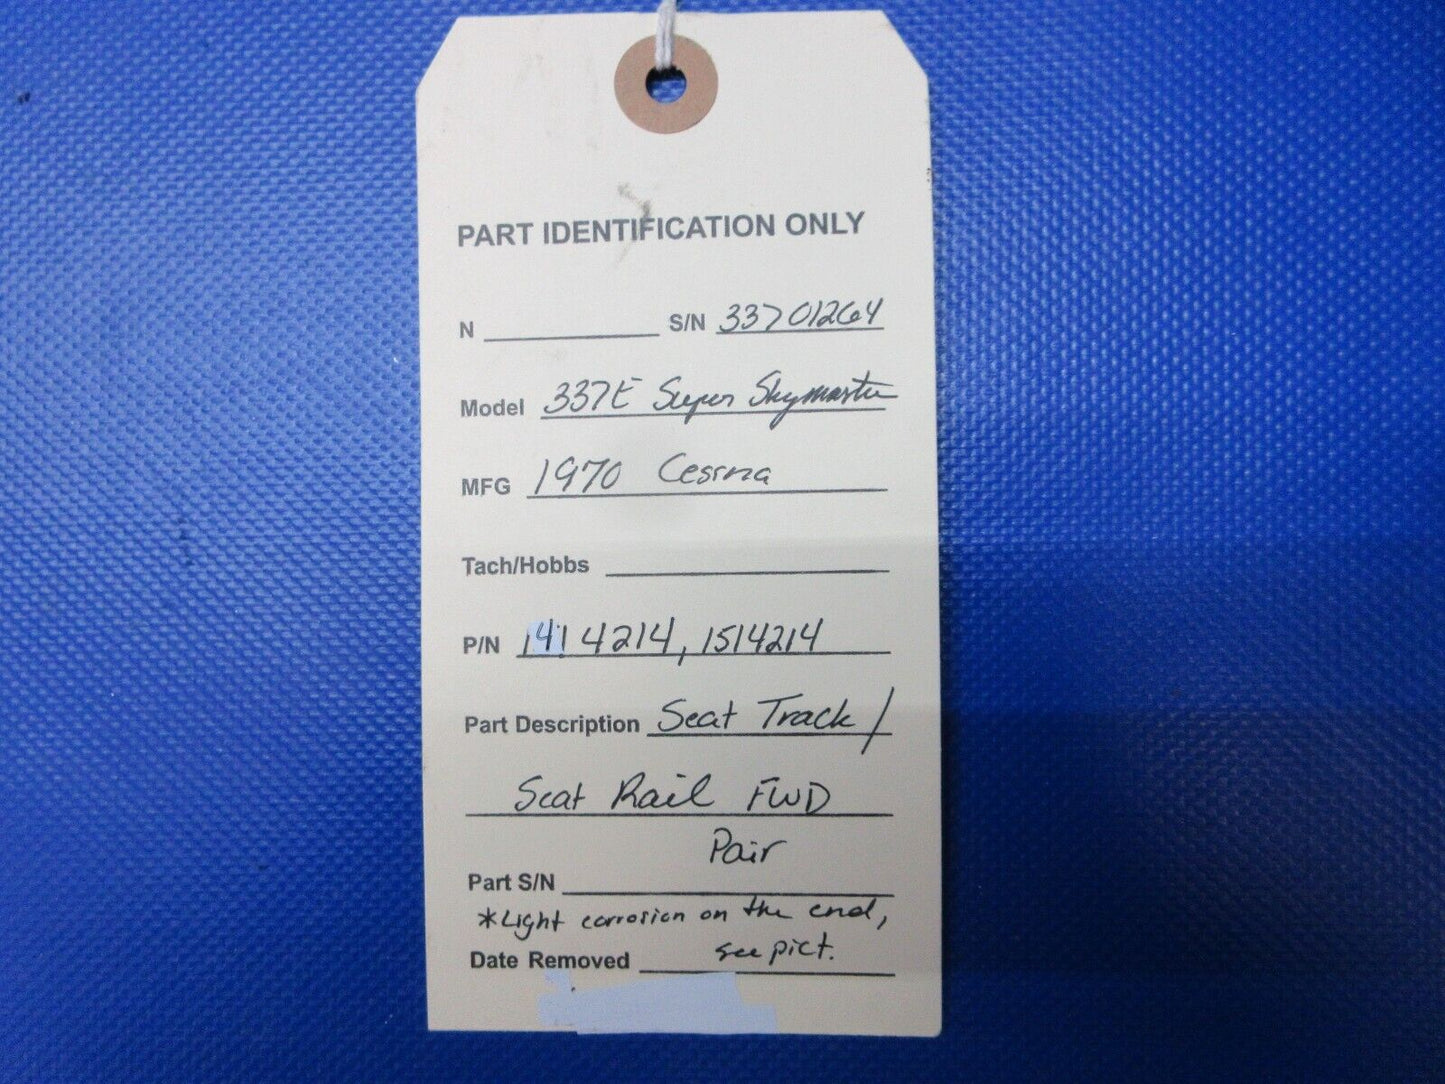 PART IDENTIFICATION ONLY
N S/N 33701264
Model 337E Super Skymaster
MFG 1970 Cessna
Tach/Hobbs
P/N 1414214, 1514214
Part Description Seat Track /
Seat Rail FWD
Pair
Part S/N
*Light corrosion on the end,
see pict.
Date Removed